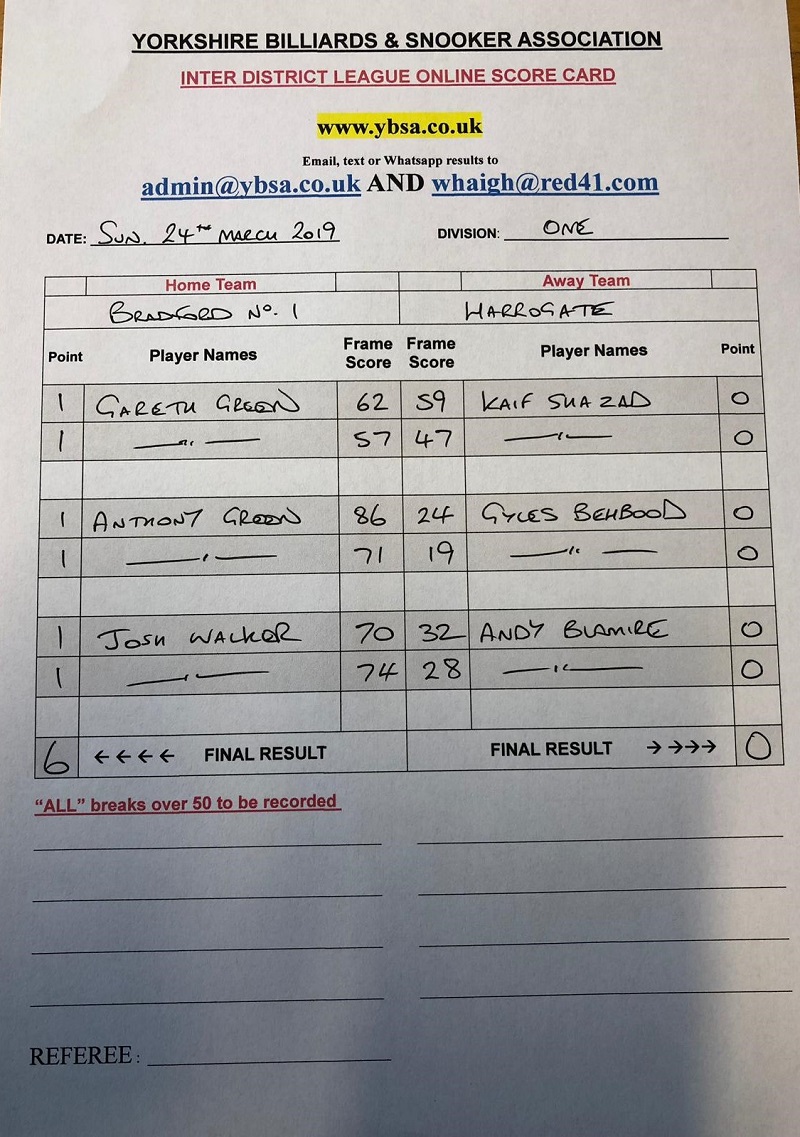 YORKSHIRE BILLIARDS & SNOOKER ASSOCIATION
INTER DISTRICT LEAGUE ONLINE SCORE CARD
www.ybsa.co.uk
Email, text or Whatsapp results to
admin@ybsa.co.uk AND whaigh@red41.com
DATE: SUN. 24TH MARCH 2019 DIVISION: ONE
Home Team Away Team
BRADFORD No. 1 HARROGATE
Point Player Names Frame Score Frame Score Player Names Point
1 GARETH GREEN 62 59 KAIF SHAZAD 0
1 —"— 57 47 —"— 0
1 ANTHONY GREEN 86 24 GYLES BEHBOOD 0
1 —"— 71 19 —"— 0
1 JOSH WALKER 70 32 ANDY BLAMIRE 0
1 —"— 74 28 —"— 0
6 ←←←← FINAL RESULT FINAL RESULT →→→→ 0
“ALL” breaks over 50 to be recorded
REFEREE: